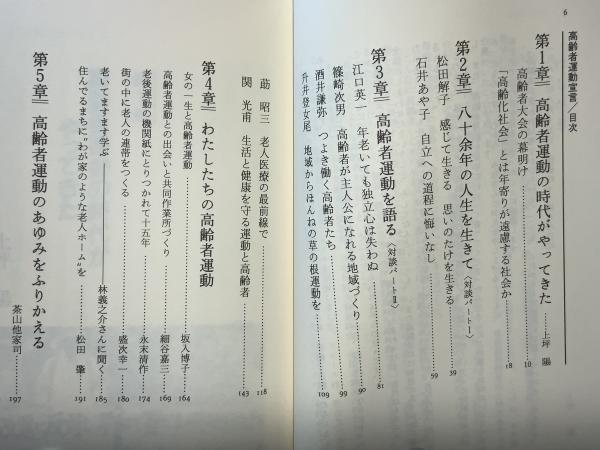 6
高齢者運動宣言/目次
第1章 高齢者運動の時代がやってきた……上坪 陽
高齢者大会の幕明け……10
「高齢化社会」とは年寄りが遠慮する社会か……18
第2章 八十余年の人生を生きて〈対談パートⅠ〉
松田解子 感じて生きる 思いのたけを生きる……39
石井あや子 自立への道程に悔いなし……59
第3章 高齢者運動を語る〈対談パートⅡ〉
江口英一 年老いても独立心は失わぬ……81
篠崎次男 高齢者が主人公になれる地域づくり……90
酒井謙弥 つよき働く高齢者たち……99
升井登女尾 地域からほんねの草の根運動を……109
莇 昭三 老人医療の最前線で……118
関 光甫 生活と健康を守る運動と高齢者……143
第4章 わたしたちの高齢者運動
女の一生と高齢者運動……坂入博子……164
高齢者運動との出会いと共同作業所づくり……細谷嘉三……169
老後運動の機関紙にとりつかれて十五年……永末清作……174
街の中に老人の連帯をつくる……盛次幸一……180
老いてますます学ぶ――林義之介さんに聞く……185
住んでるまちに"わが家のような老人ホーム"を……松田 肇……191
第5章 高齢者運動のあゆみをふりかえる……茶山他家司……197